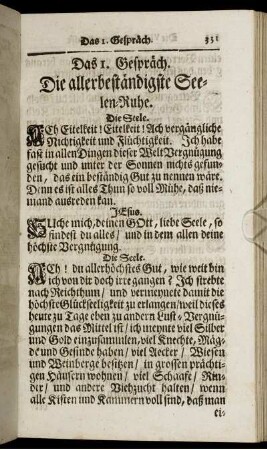 Das 1. Gespräch. 331
Das 1. Gespräch.
Die allerbeständigste See-
len-Ruhe.
Die Seele.
ACh Eitelkeit! Eitelkeit! Ach vergängliche
Nichtigkeit und Flüchtigkeit. Ich habe
fast in allen Dingen dieser Welt Vergnügung
gesucht und unter der Sonnen nichts gefun-
den, das ein beständig Gut zu nennen wäre.
Denn es ist alles Thun so voll Mühe, daß nie-
mand ausreden kan.
JEsus.
SUche mich, deinen GOtt, liebe Seele, so
findest du alles/ und in dem allen deine
höchste Vergnügung.
Die Seele.
ACh! du allerhöchstes Gut, wie weit bin
ich von dir doch irre gangen? Ich strebte
nach Reichthum/ und vermeynete damit die
höchste Glückseeligkeit zu erlangen/ weil dieses
heute zu Tage eben zu andern Lust-Vergnü-
gungen das Mittel ist/ ich meynte viel Silber
und Gold einzusamlen, viel Knechte, Mäg-
de und Gesinde haben/ viel Aecker/ Wiesen
und Weinberge besitzen/ in grossen prächti-
gen Häusern wohnen/ viel Schaafe/ Rin-
der/ und andere Viehzucht halten/ wenn
alle Kisten und Kammern voll sind, daß man
ei-